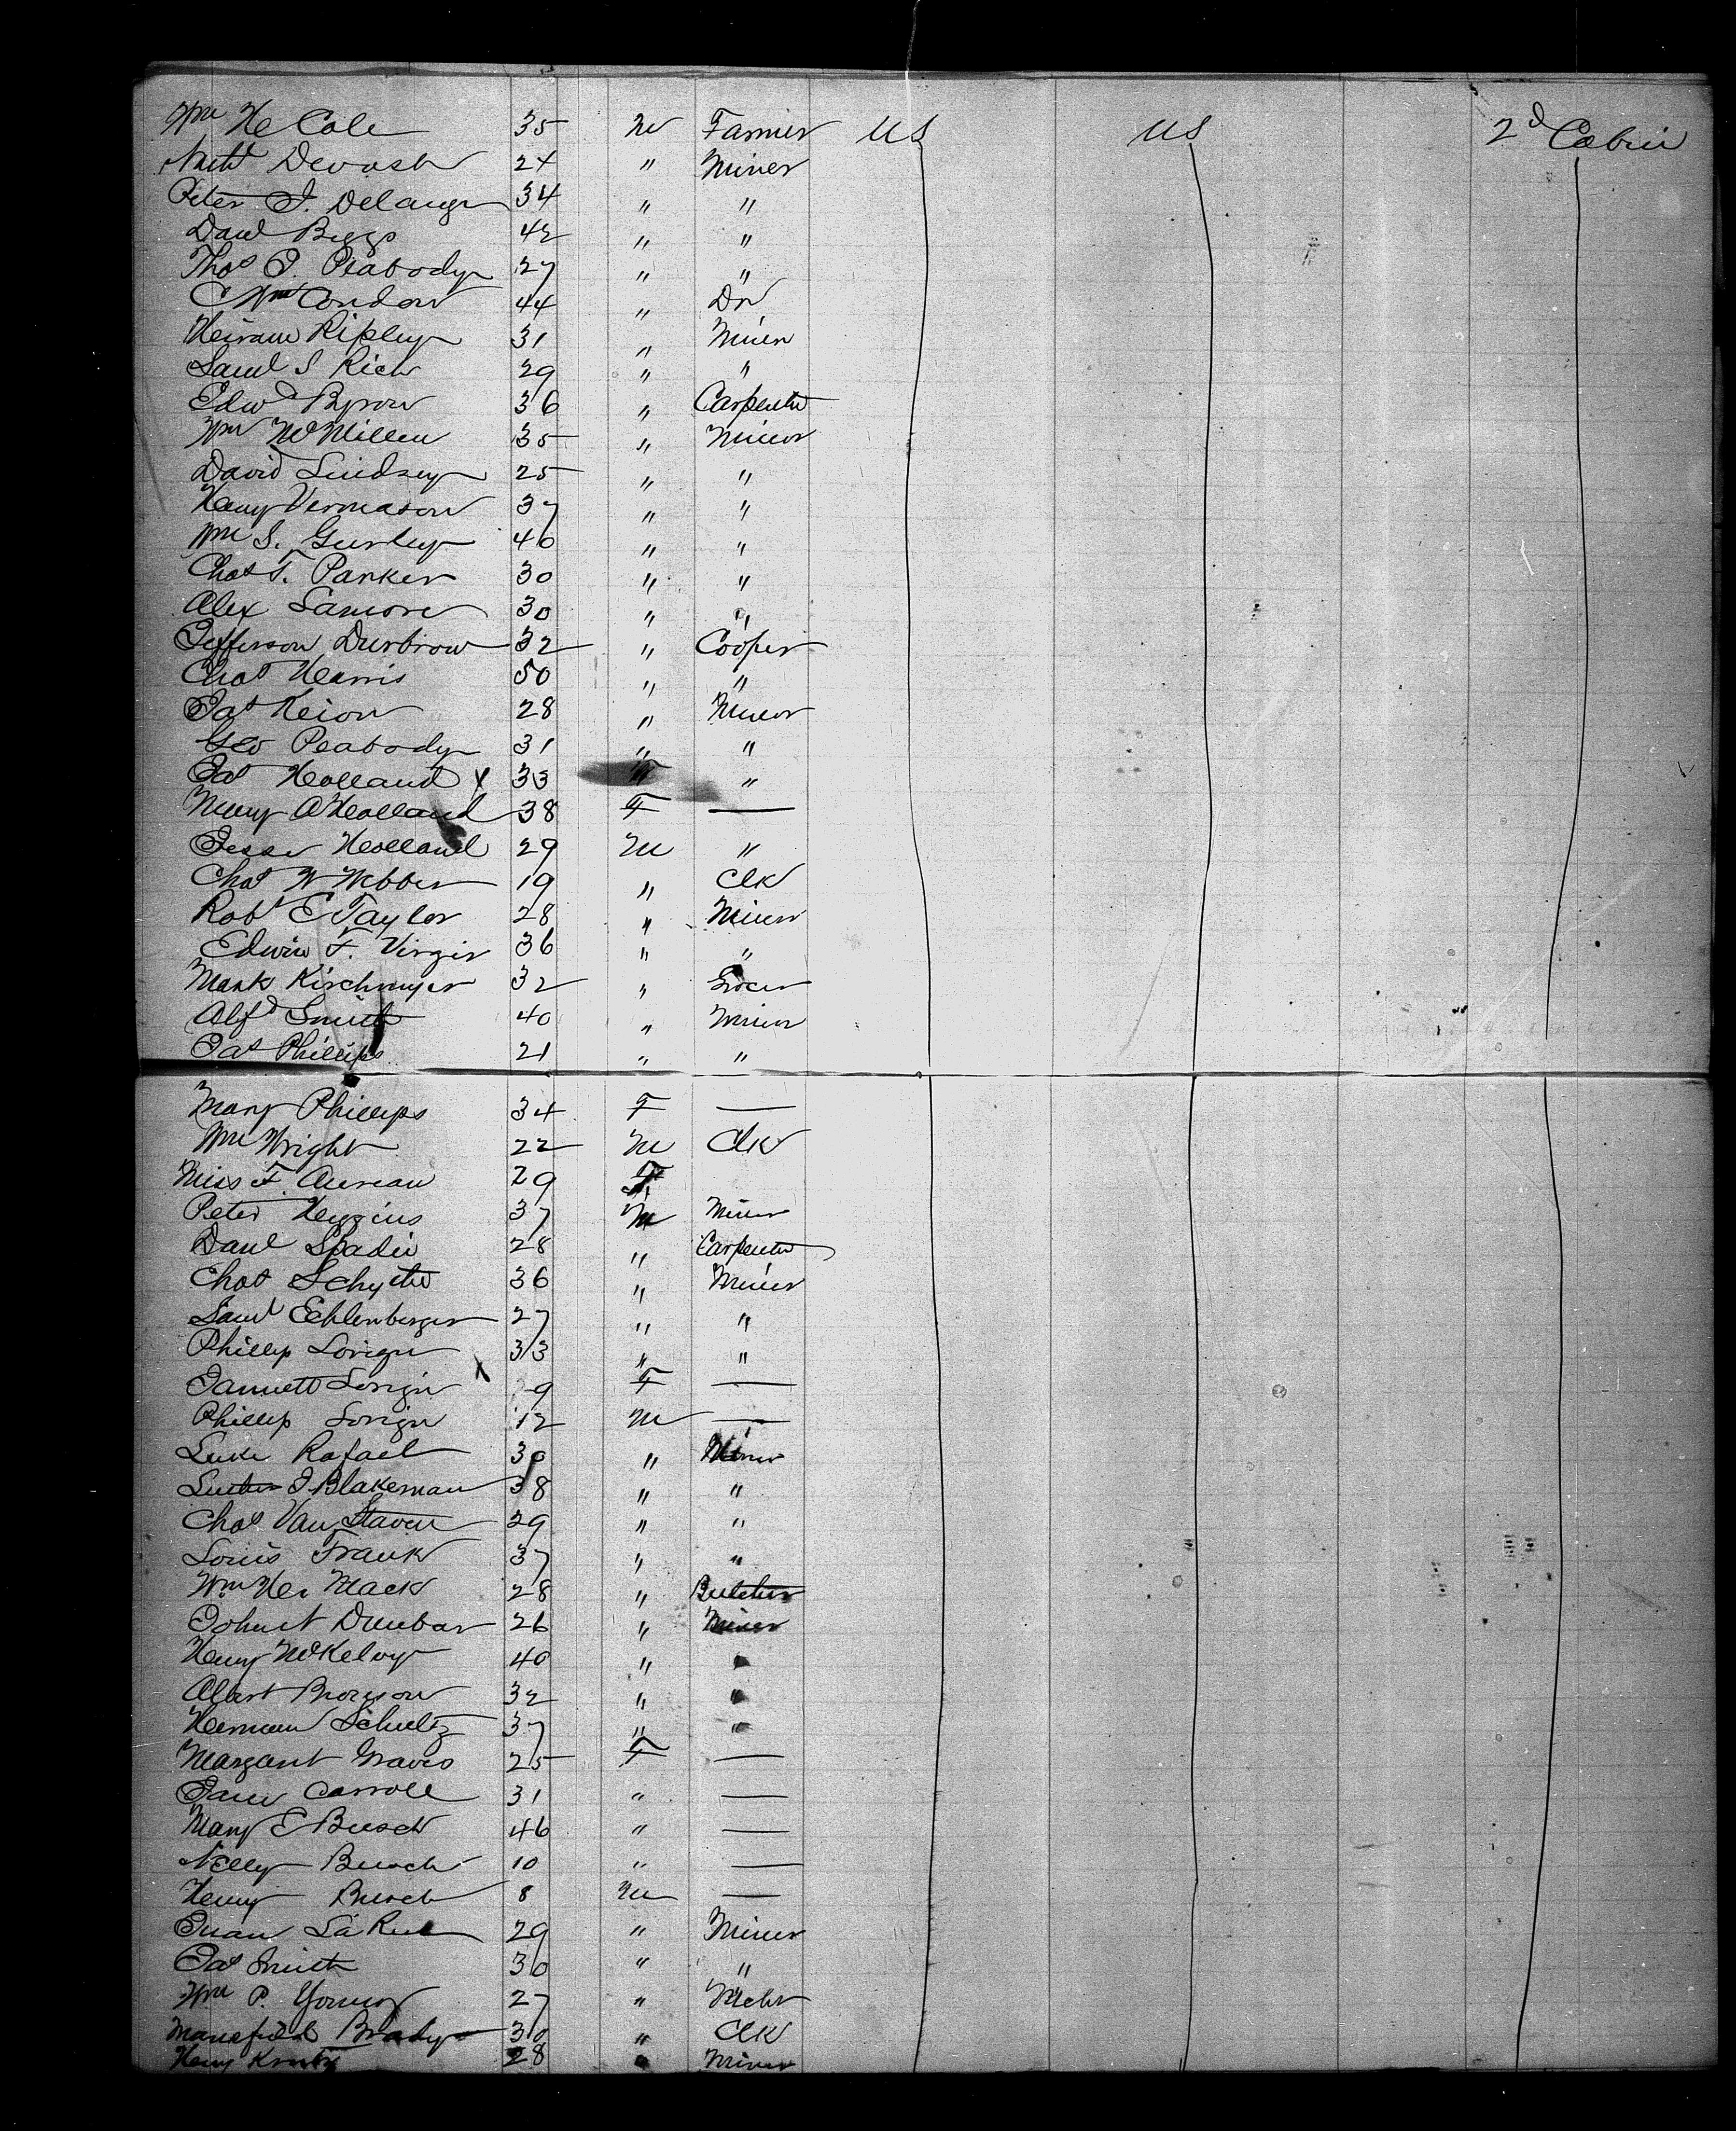 Wm H Cole 35 M Farmer US US 2d Cabin
Nath Devosh 24 " Miner
Peter J. Delange 34 " "
Danl Biggs 42 " "
Thos J. Peabody 27 " "
C Wm Condon 44 " Dr
Heiram Ripley 31 " Miner
Saml S Rich 29 " "
Edwd Byron 36 " Carpenter
Wm McMillen 35 " Miner
David Lindsey 25 " "
Heny Vermason 37 " "
Wm S. Gurley 46 " "
Chas T. Parker 30 " "
Alex Lamore 30 " "
Jefferson Durbrow 32 " Cooper
Chas Harris 50 " "
Jas Keion 28 " Miner
Geo Peabody 31 " "
Jas Holland X 33 M "
Mary A Holland 38 F —
Jesse Holland 29 M "
Chas W Webber 19 " Clk
Robt E Taylor 28 " Miner
Edwin F. Virgin 36 " "
Mark Kirchmyer 32 " Grocer
Alfd Smith 40 " Miner
Jas Phillips 21 " "
Mary Phillips 34 F —
Wm Wright 22 M Clk
Miss F. Aureau 29 F
Peter Heggins 37 M Miner
Danl Spadie 28 " Carpenter
Chas 36 " Miner
Saml Echlenberger 27 " "
Phillip Lorign 33 " "
Jannett Lorign 9 F —
Phillip Lorign 12 M —
Luke Rafael 30 " Miner
Luther J Blakeman 38 " "
Chas Van Staven 29 " "
Louis Frank 37 " "
Wm Mack 28 " Butcher
John Dunbar 26 " Miner
Heny McKelvy 40 " "
Albert Bronson 32 " "
Herman Schultz 37 " "
Margaret Graves 25 F —
Jane Carroll 31 " —
Mary E Busch 46 " —
Nelly Busch 10 " —
Heny Busch 8 M —
Juan La Rue 29 " Miner
Jas Smith 30 " "
Wm P. Young 27 "
Mansfield Brady 30 " Clk
Heny 28 " Miner